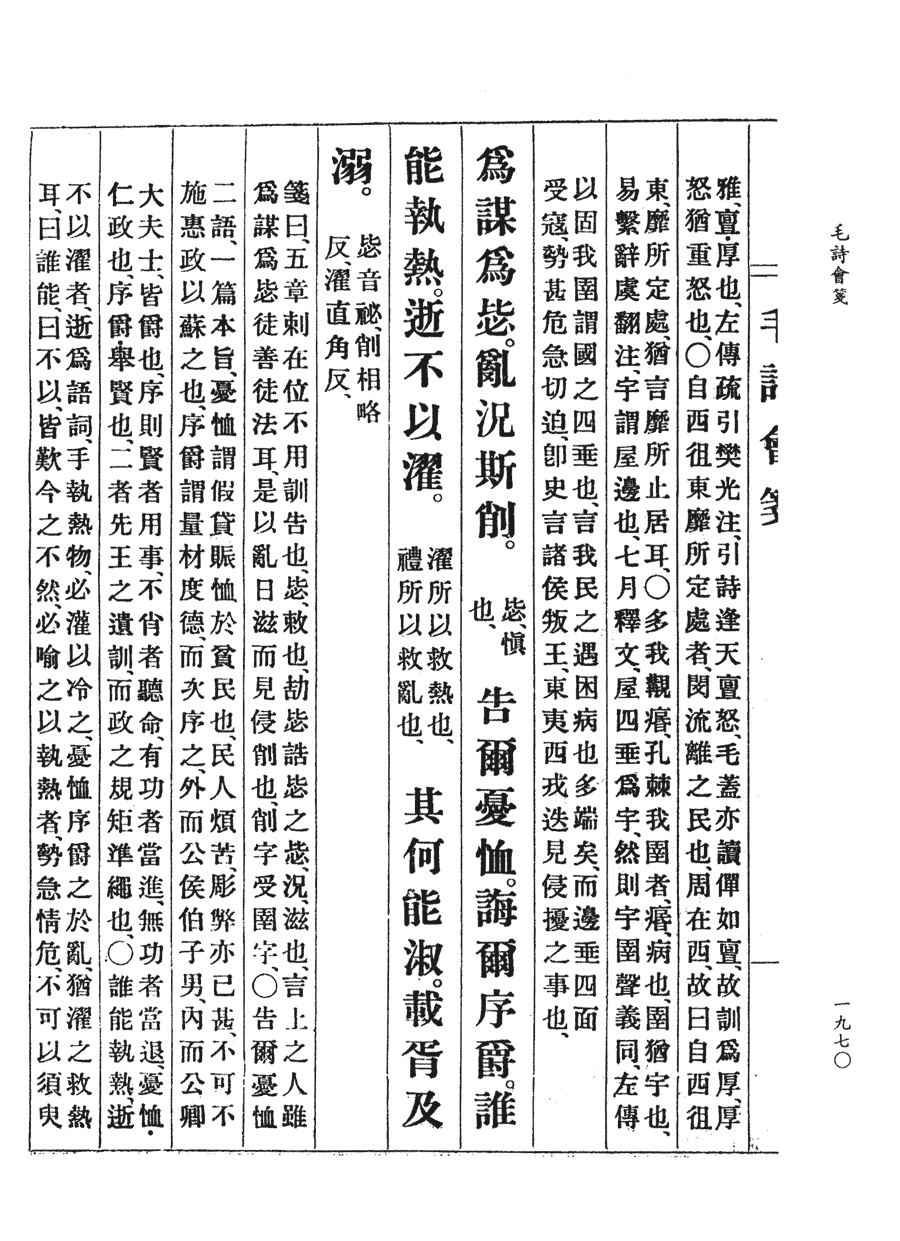 毛詩會箋
一九七〇
毛詩會箋
雅、亶、厚也、左傳疏引樊光注、引詩逢天亶怒、毛蓋亦讀僤如亶、故訓爲厚、厚
怒猶重怒也、〇自西徂東靡所定處者、閔流離之民也、周在西、故曰自西徂
東、靡所定處、猶言靡所止居耳、〇多我觀痻、孔棘我圉者、痻、病也、圉猶宇也、
易繫辭虞翻注、宇謂屋邊也、七月釋文、屋四垂爲宇、然則宇圉聲義同、左傳
以固我圉謂國之四垂也、言我民之遇困病也多端矣、而邊垂四面
受寇、勢甚危急切迫、卽史言諸侯叛王、東夷西戎迭見侵擾之事也、
爲謀爲毖。亂況斯削。毖、愼也、告爾憂恤。誨爾序爵。誰
能執熱。逝不以濯。濯所以救熱也、禮所以救亂也、其何能淑。載胥及
溺。毖音祕、削相略反、濯直角反、
箋曰、五章刺在位不用訓告也、毖、敕也、劼毖誥毖之毖、況、滋也、言上之人雖
爲謀爲毖徒善徒法耳、是以亂日滋而見侵削也、削字受圉字、〇告爾憂恤
二語、一篇本旨、憂恤謂假貸賑恤於貧民也、民人煩苦、彫弊亦已甚、不可不
施惠政以蘇之也、序爵謂量材度德、而次序之、外而公侯伯子男、內而公卿
大夫士、皆爵也、序則賢者用事、不肖者聽命、有功者當進、無功者當退、憂恤・
仁政也、序爵・舉賢也、二者先王之遺訓、而政之規矩準繩也、〇誰能執熱、逝
不以濯者、逝爲語詞、手執熱物、必灌以冷之、憂恤序爵之於亂、猶濯之救熱
耳、曰誰能、曰不以、皆歎今之不然、必喻之以執熱者、勢急情危、不可以須臾